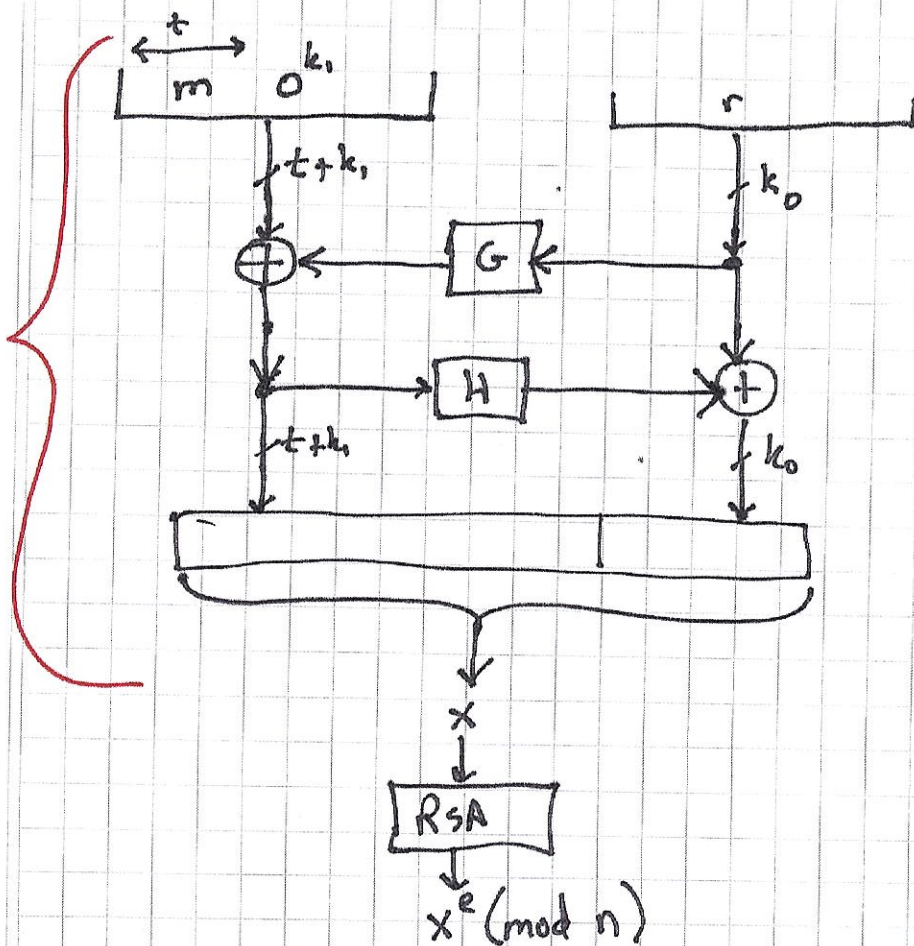 t
m 0^k₁
r
t+k₁
k₀
G
H
t+k₁
k₀
x
RSA
x^e (mod n)